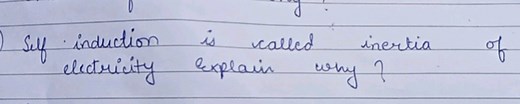 ) Self induction is called inertia of
electricity explain why ?